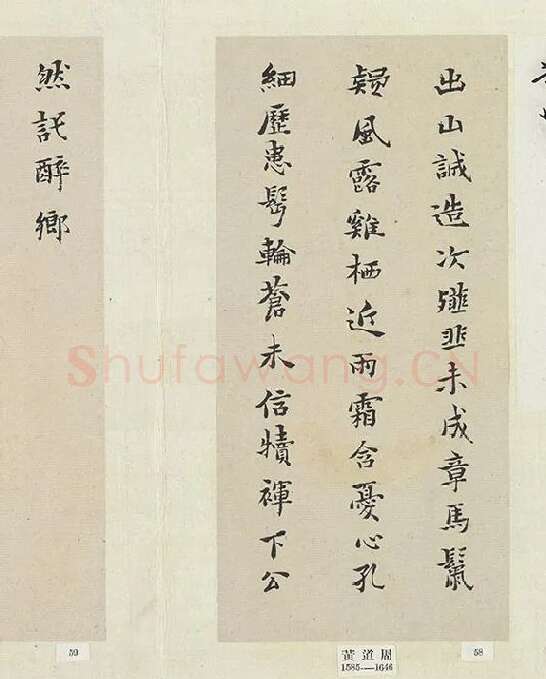 出山誠造次殪韭未成章馬鬣
疑風露雞栖近雨霜含憂心孔
細歷患髩輪蒼未信犢褌下公
然託醉鄉
Shufawang.CN
59
黄道周
1585—1646
58